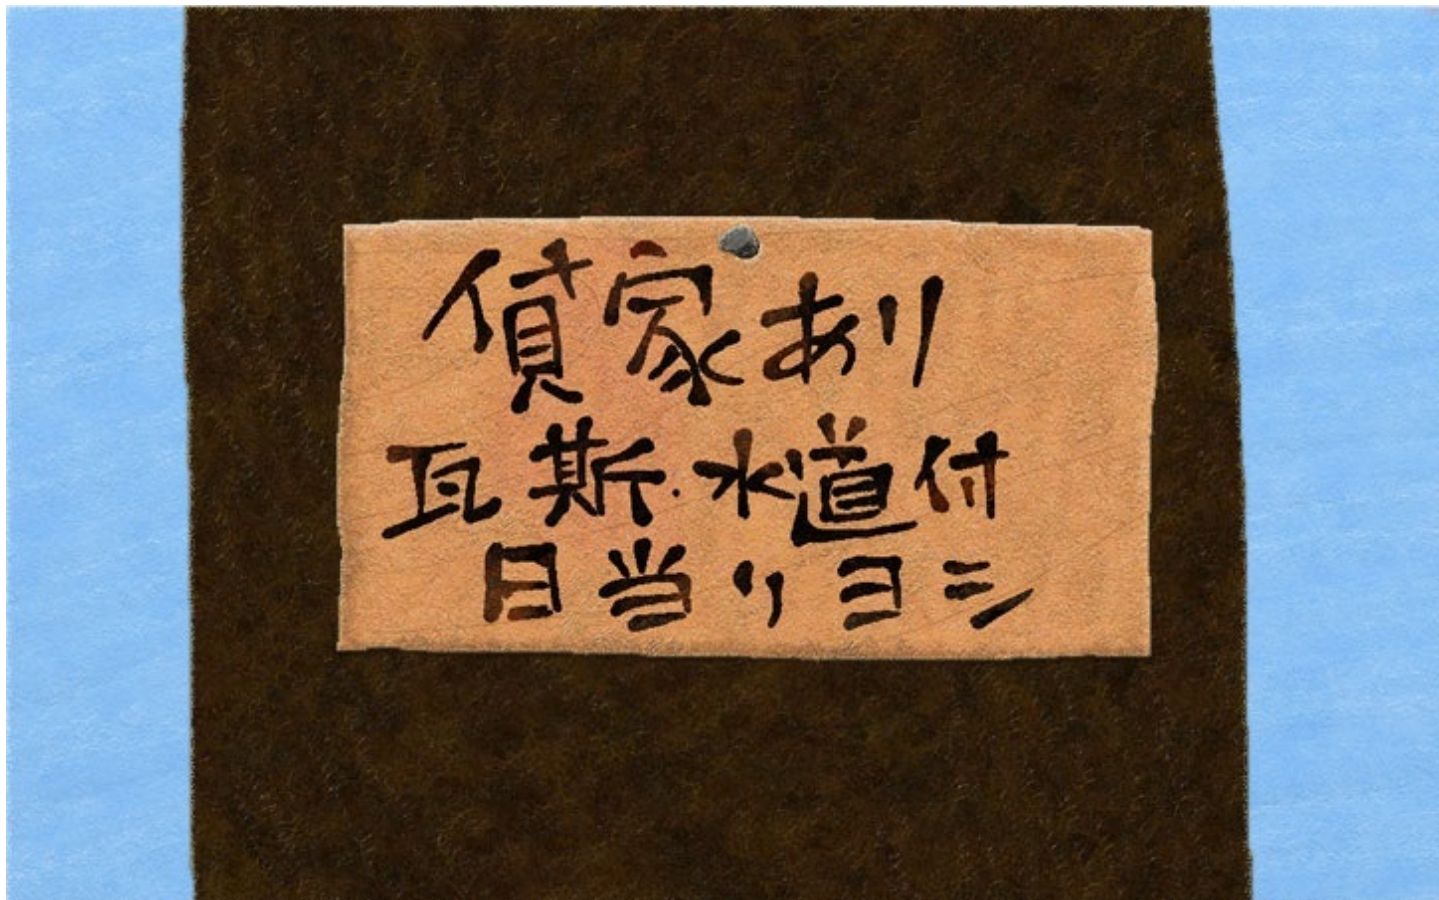 貸家あり
瓦斯・水道付
日当リヨシ